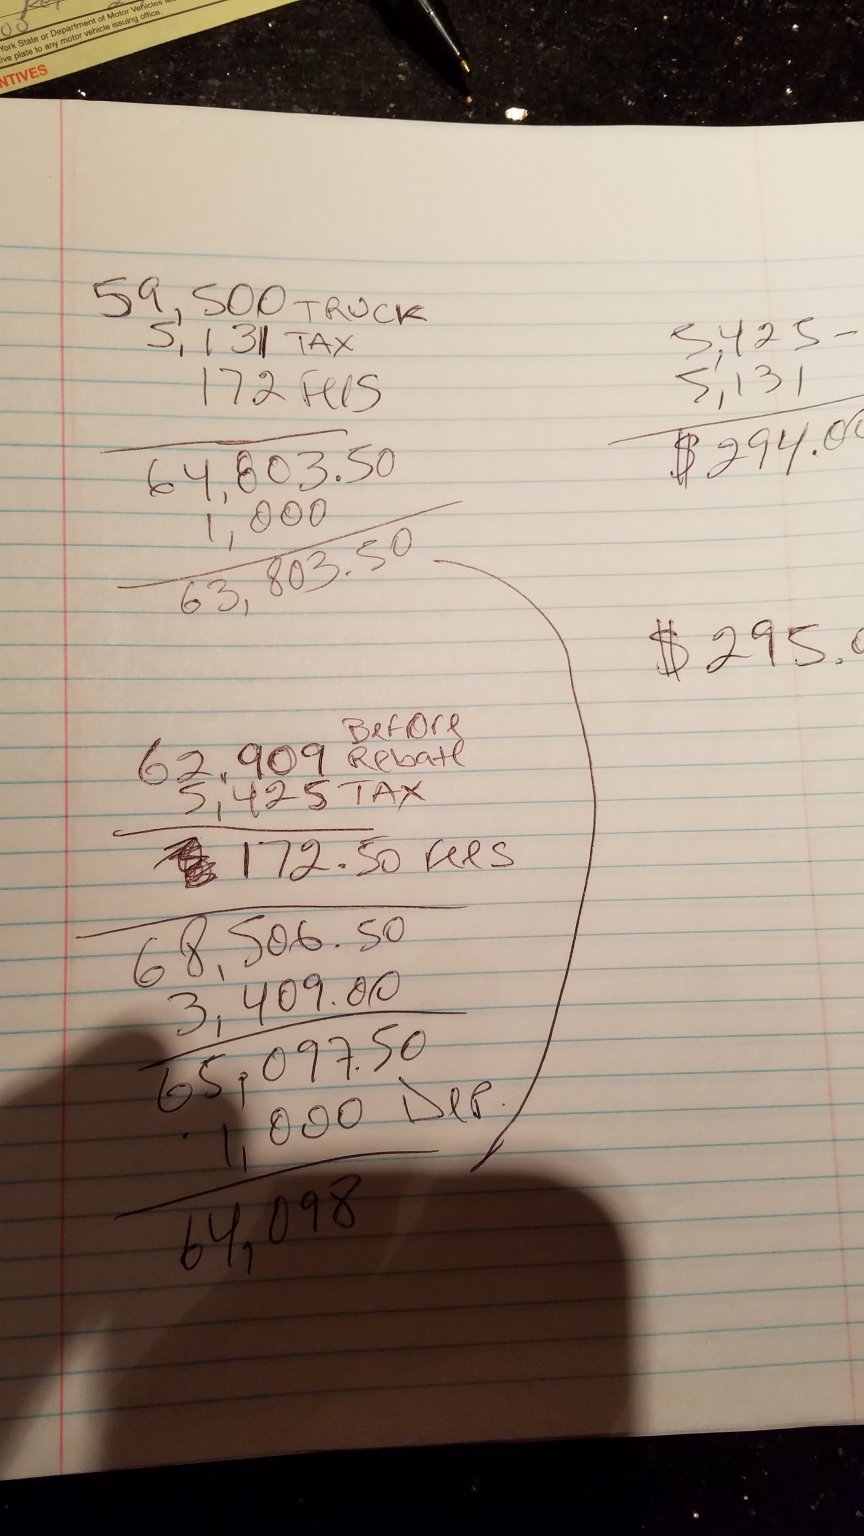 York State or Department of Motor Vehicles
ive plate to any motor vehicle issuing office.
NTIVES
59,500 TRUCK
5,131 TAX
172 Fees
64,803.50
1,000
63,803.50
5,425 -
5,131
$294.00
$295.0
62,909 Before Rebate
5,425 TAX
172.50 Fees
68,506.50
3,409.00
65,097.50
1,000 Dep.
64,098